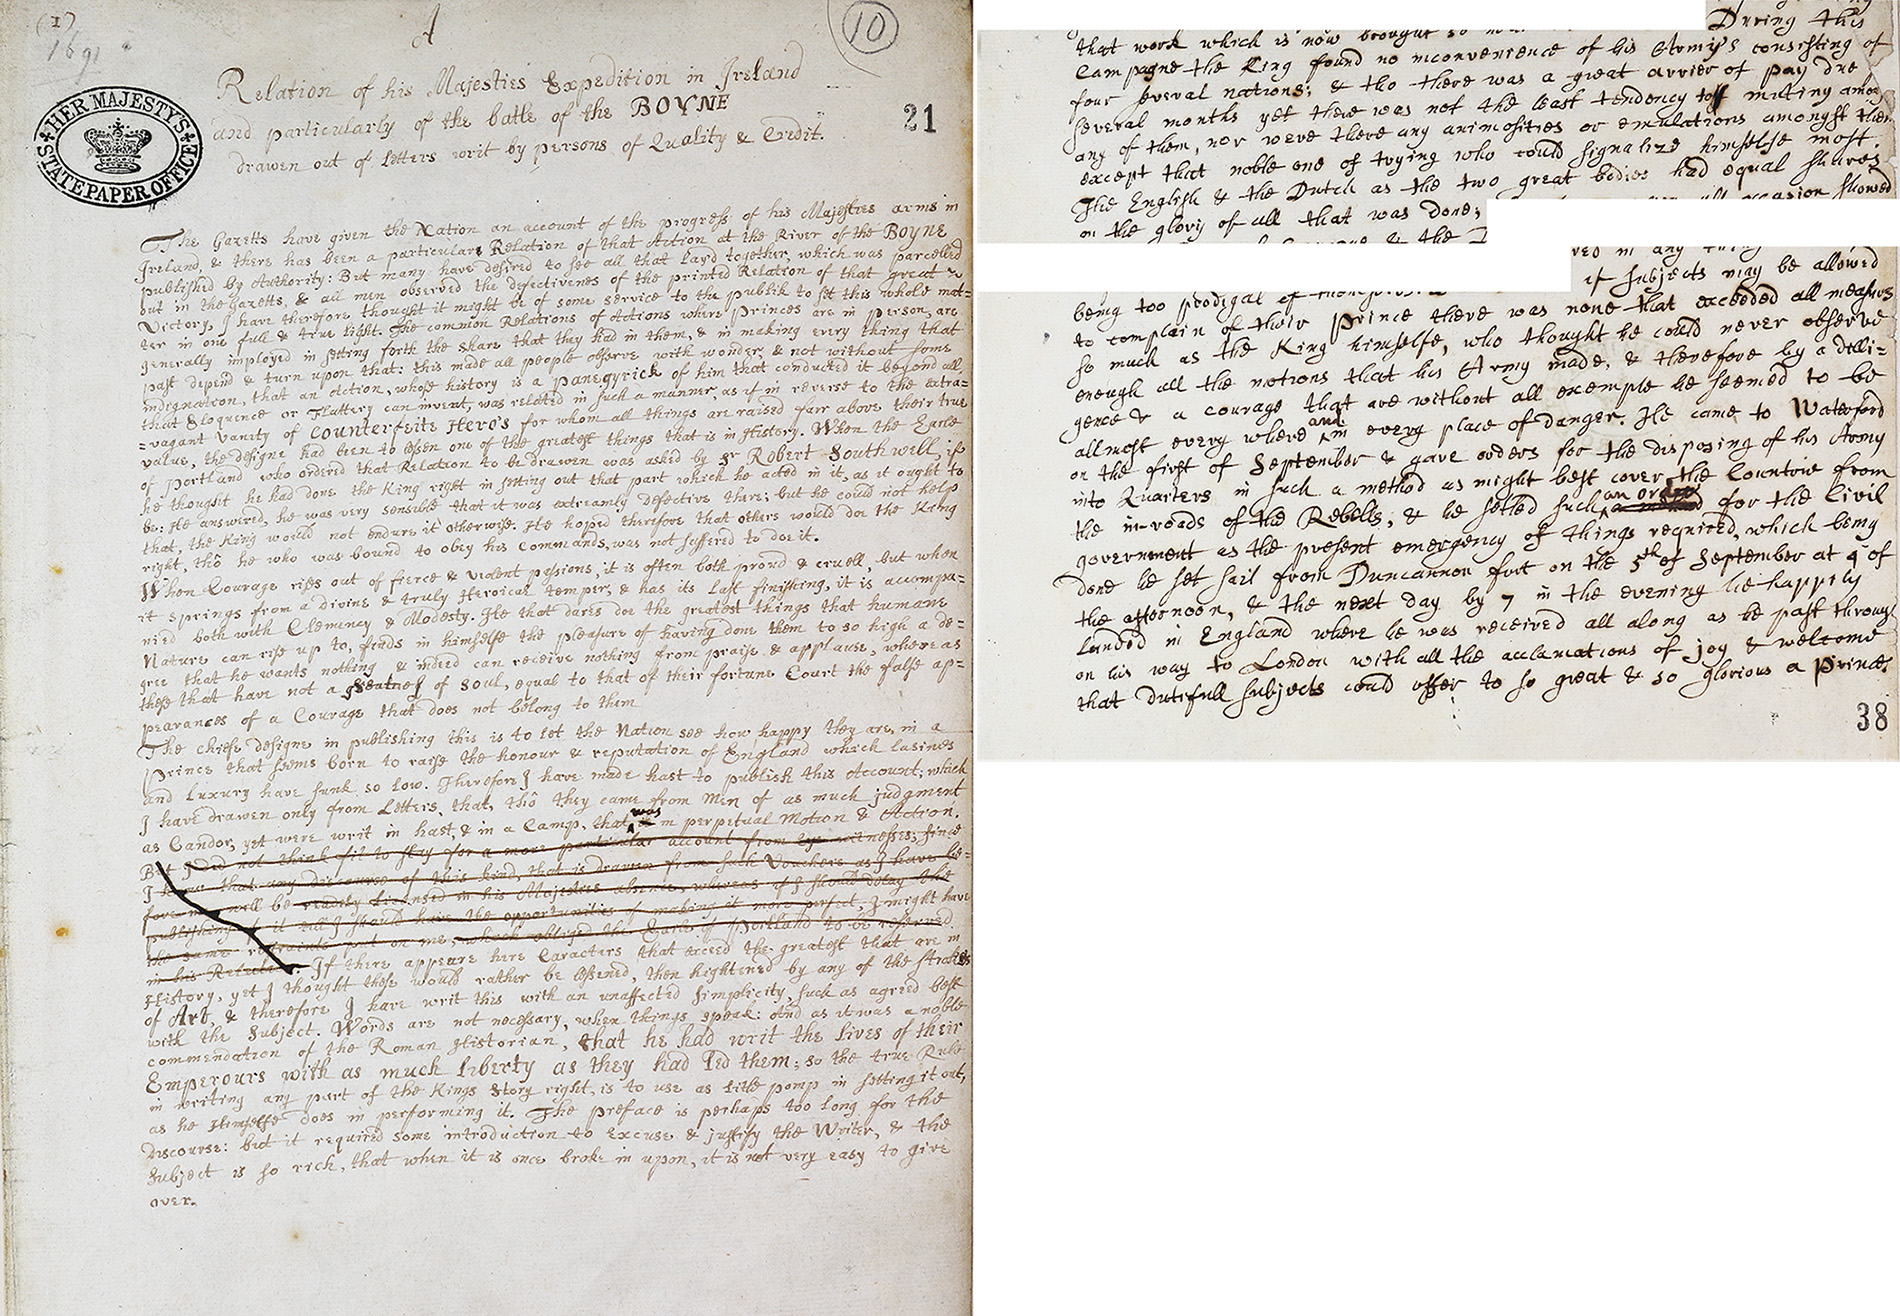 (1)
A
10
1691
Relation of his Majesties Expedition in Ireland
and particularly of the batle of the BOYNE
drawen out of letters writ by persons of Quality & Credit.
21
HER MAJESTY'S
STATE PAPER OFFICE
The Gazetts have given the Nation an account of the progress of his Majesties arms in
Ireland, & there has been a particulare Relation of that Action at the River of the BOYNE
published by Authority: But many have desired to see all that layd together, which was parcelled
out in the Gazetts, & all men observed the defectivenes of the printed Relation of that great
Victory, I have therefore thought it might be of some service to the publik to set this whole mat=
ter in one full & true light. The common Relations of Actions where princes are in person, are
generally imployed in setting forth the share that they had in them, & in making every thing that
past depend & turn upon that: this made all people observe with wonder, & not without some
indignation, that an Action, whose history is a panegyrick of him that conducted it beyond all,
that Eloquence or Flattery can invent, was related in such a manner, as if in reverse to the extra=
=vagant vanity of counterfeite Hero's for whom all things are raised farr above their true
value, the designe had been to lessen one of the greatest things that is in History. When the Earle
of Portland who ordered that Relation to be drawen was asked by Sr Robert Southwell, if
he thought he had done the King right in setting out that part which he acted in it, as it ought to
be: He answered, he was very sensible that it was extreamly defective there; but he could not help
that, the King would not endure it otherwise. He hoped therefore that others would doe the King
right, thô he who was bound to obey his commands, was not suffered to doe it.
When Courage rises out of fierce & violent passions, it is often both proud & cruell, but when
it springs from a divine & truly Heroical temper, & has its last finishing, it is accompa=
nied both with Clemency & Modesty. He that dares doe the greatest things that humane
Nature can rise up to, finds in himselfe the pleasure of having done them to so high a de=
gree that he wants nothing & indeed can receive nothing from praise & applause, whereas
these that have not a greatnes of Soul, equal to that of their fortune Court the false ap=
pearances of a Courage that does not belong to them
The chiefe designe in publishing this is to let the Nation see how happy they are, in a
prince that seems born to raise the honour & reputation of England which lasines
and luxury have sunk so low. Therefore I have made hast to publish this Account; which
I have drawen only from Letters, that, thô they came from Men of as much judgment
as Candor, yet were writ in hast, & in a Camp, that was in perpetual Motion & Action.
But I did not think fit to stay for a more particular account from eye witnesses; since
I know that any discourse of this kind, that is drawen from such Vouchers as I have be=
fore me, will be readily licensed in his Majesties absence, whereas if I should delay the
publishing of it till I should have the opportunities of making it more perfect, I might have
the same restraints put on me, which obliged the Earle of Portland to be reserved
in his Relation. If there appeare here Caracters that exceed the greatest that are in
History, yet I thought these would rather be lessened, then hightened by any of the strokes
of Art, & therefore I have writ this with an unaffected simplicity, such as agreed best
with the Subject. Words are not necessary, when things speak: And as it was a noble
commendation of the Roman Historian, that he had writ the lives of their
Emperours with as much liberty as they had led them; so the true Rule
in writing any part of the Kings Story right, is to use as litle pomp in setting it out,
as he Himselfe does in performing it. The preface is perhaps too long for the
Discourse: but it required some introduction to excuse & justify the Writer, & the
Subject is so rich, that when it is once broke in upon, it is not very easy to give
over.
During this
that work which is now brought so
Campagne the King found no inconvenience of his Army's consisting of
four several nations; & tho there was a great arrier of pay due
several months yet there was not the least tendency to mutiny among
any of them, nor were there any animosities or emulations amongst them
except that noble one of trying who could signalize himselfe most.
The English & the Dutch as the two great bodies had equal shares
on the glory of all that was done;
occasion showed
& the
in any
if subjects may be allowed
being too prodigal of
to complain of their Prince there was none that exceeded all measures
so much as the King himselfe, who thought he could never observe
enough all the motions that his Army made, & therefore by a dilli=
gence & a courage that are without all exemple he seemed to be
allmost every where and in every place of danger. He came to Waterford
on the first of September & gave orders for the disposing of his Army
into Quarters in such a method as might best cover the Countrie from
the in-roads of the Rebells, & he setled such an order a method for the Civil
government as the present emergency of things required, which being
done he set sail from Duncannon fort on the 5th of September at 4 of
the afternoon, & the next day by 7 in the evening he happily
landed in England where he was received all along as he past through
on his way to London with all the acclamations of joy & welcome
that dutifull subjects could offer to so great & so glorious a prince.
38